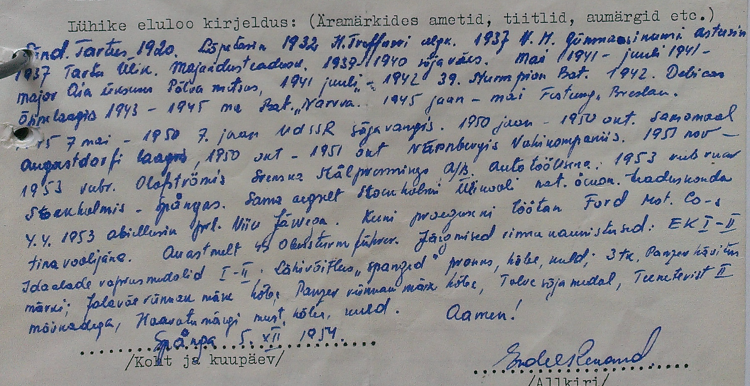 Lühike eluloo kirjeldus: (Äramärkides ametid, tiitlid, aumärgid etc.)
Sünd. Tartus 1920. Lõpetasin 1932 H. Treffneri algk. 1937 gümnaasiumi astusin
1937 Tartu Ülik. Majandusteadusk. 1939-1940 sõjaväes. Mai 1941 - juuli 1941 -
major üksuses Põlva metsas, 1941 juuli - 1942 39. Bat. 1942. Debicas
Õppelaagris 1943 - 1945 ma Bat. „Narva. 1945 jaan - mai Festung Breslau.
45 7 mai - 1950 7. jaan UdSSR sõjavangis. 1950 jaan - 1950 okt. samamoodi
Augustdorfi laagris, 1950 okt - 1951 okt Nürnbergis Vahikompaniis. 1951 nov -
1953 vebr. Olofströmis Svenska Stålpressnings A/B. Autotööline. 1953 vebruar
Stockholmis - Spångas. Sama aegselt Stockholmi Ülikooli nat. ökon. teaduskonda
4.4. 1953 abiellusin prl. Niiu Kuni praeguseni töötan Ford Mot. Co-s
tina valajana. Auastmelt Obersturmführer. Järgmised rinnanaunistused: EK I-II
Idaalade vaprusmedalid I-II. Lähivõitlus „spanged" pronks, hõbe, kuld; 3 tk. Panzer hävitus
märki; Jalaväe rünnaku märk hõbe, Panzer rünnaku märk hõbe, Talve sõja medal, Teeneterist II
mõõkadega, Haavatu märgi must, hõbe, kuld. Aamen!
Spånga 5. XII. 1954.
/Koht ja kuupäev/
/Allkiri/